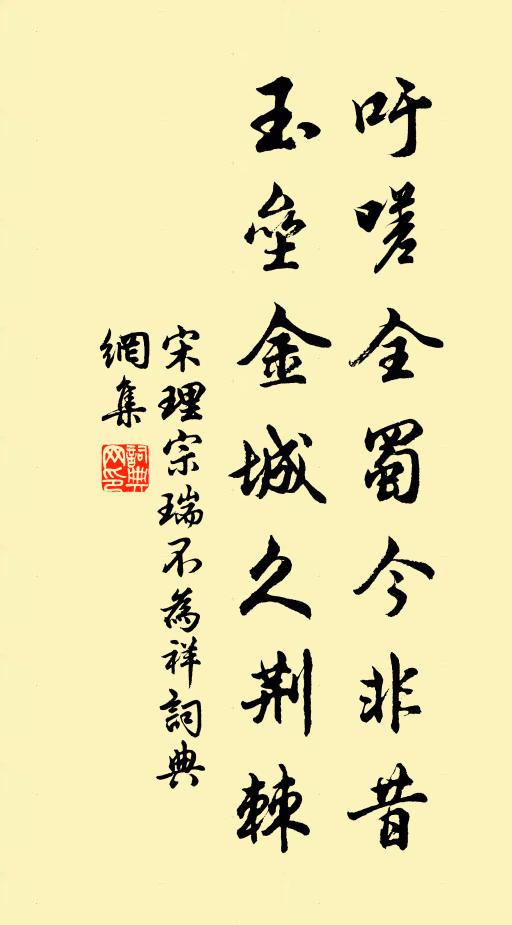 吁嗟全蜀今非昔
玉壘金城久荆棘
宋理宗瑞不為祥詞典
網集
詞典
网印